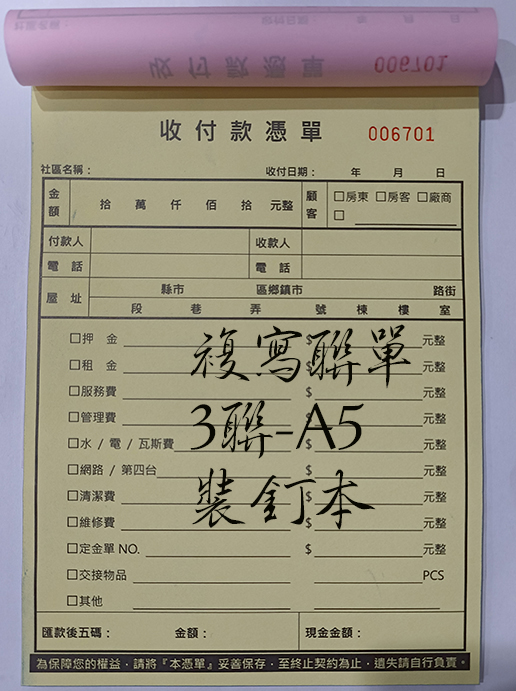 收付款憑單 006701
收付款憑單 006701
社區名稱： 收付日期： 年 月 日
金額 拾 萬 仟 佰 拾 元整 顧客 □房東 □房客 □廠商
□
付款人 收款人
電話 電話
屋址 縣市 區鄉鎮市 路街
段 巷 弄 號 棟 樓 室
□押 金 $ 元整
□租 金 $ 元整
□服務費 $ 元整
□管理費 $ 元整
□水 / 電 / 瓦斯費 $ 元整
□網路 / 第四台 $ 元整
□清潔費 $ 元整
□維修費 $ 元整
□定金單 NO. $ 元整
□交接物品 PCS
□其他
複寫聯單
3聯-A5
裝釘本
匯款後五碼： 金額： 現金金額：
為保障您的權益，請將『本憑單』妥善保存，至終止契約為止，遺失請自行負責。